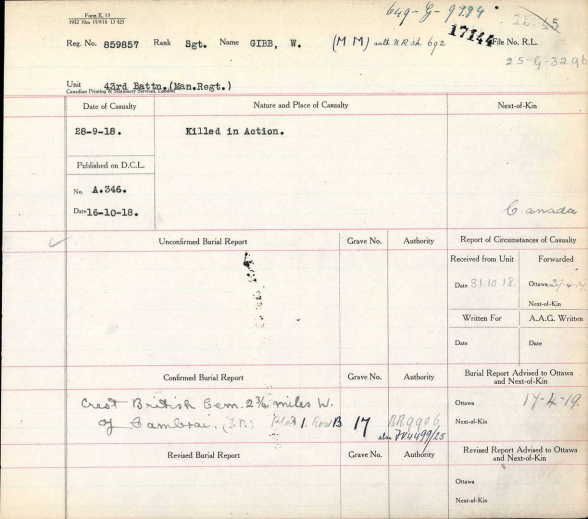 Form K. 13
649-G-9784
Reg. No. 859857 Rank Sgt. Name GIBB, W. (M M) auth 17144 File No. R.L.
25-G-3296
Unit 43rd Battn.(Man.Regt.)
Canadian Printing & Stationery Services, London
Date of Casualty Nature and Place of Casualty Next-of-Kin
28-9-18. Killed in Action.
Published on D.C.L.
No. A.346.
Date 16-10-18. Canada
Unconfirmed Burial Report Grave No. Authority Report of Circumstances of Casualty
Received from Unit Forwarded
Date 31.10.18. Ottawa
Next-of-Kin
Written For A.A.G. Written
Date Date
Confirmed Burial Report Grave No. Authority Burial Report Advised to Ottawa and Next-of-Kin
Crest British Cem. 2¾ miles W. Ottawa 17-4-19
of Cambrai. Plot 1. Row B 17 Next-of-Kin
Revised Burial Report Grave No. Authority Revised Report Advised to Ottawa and Next-of-Kin
Ottawa
Next-of-Kin